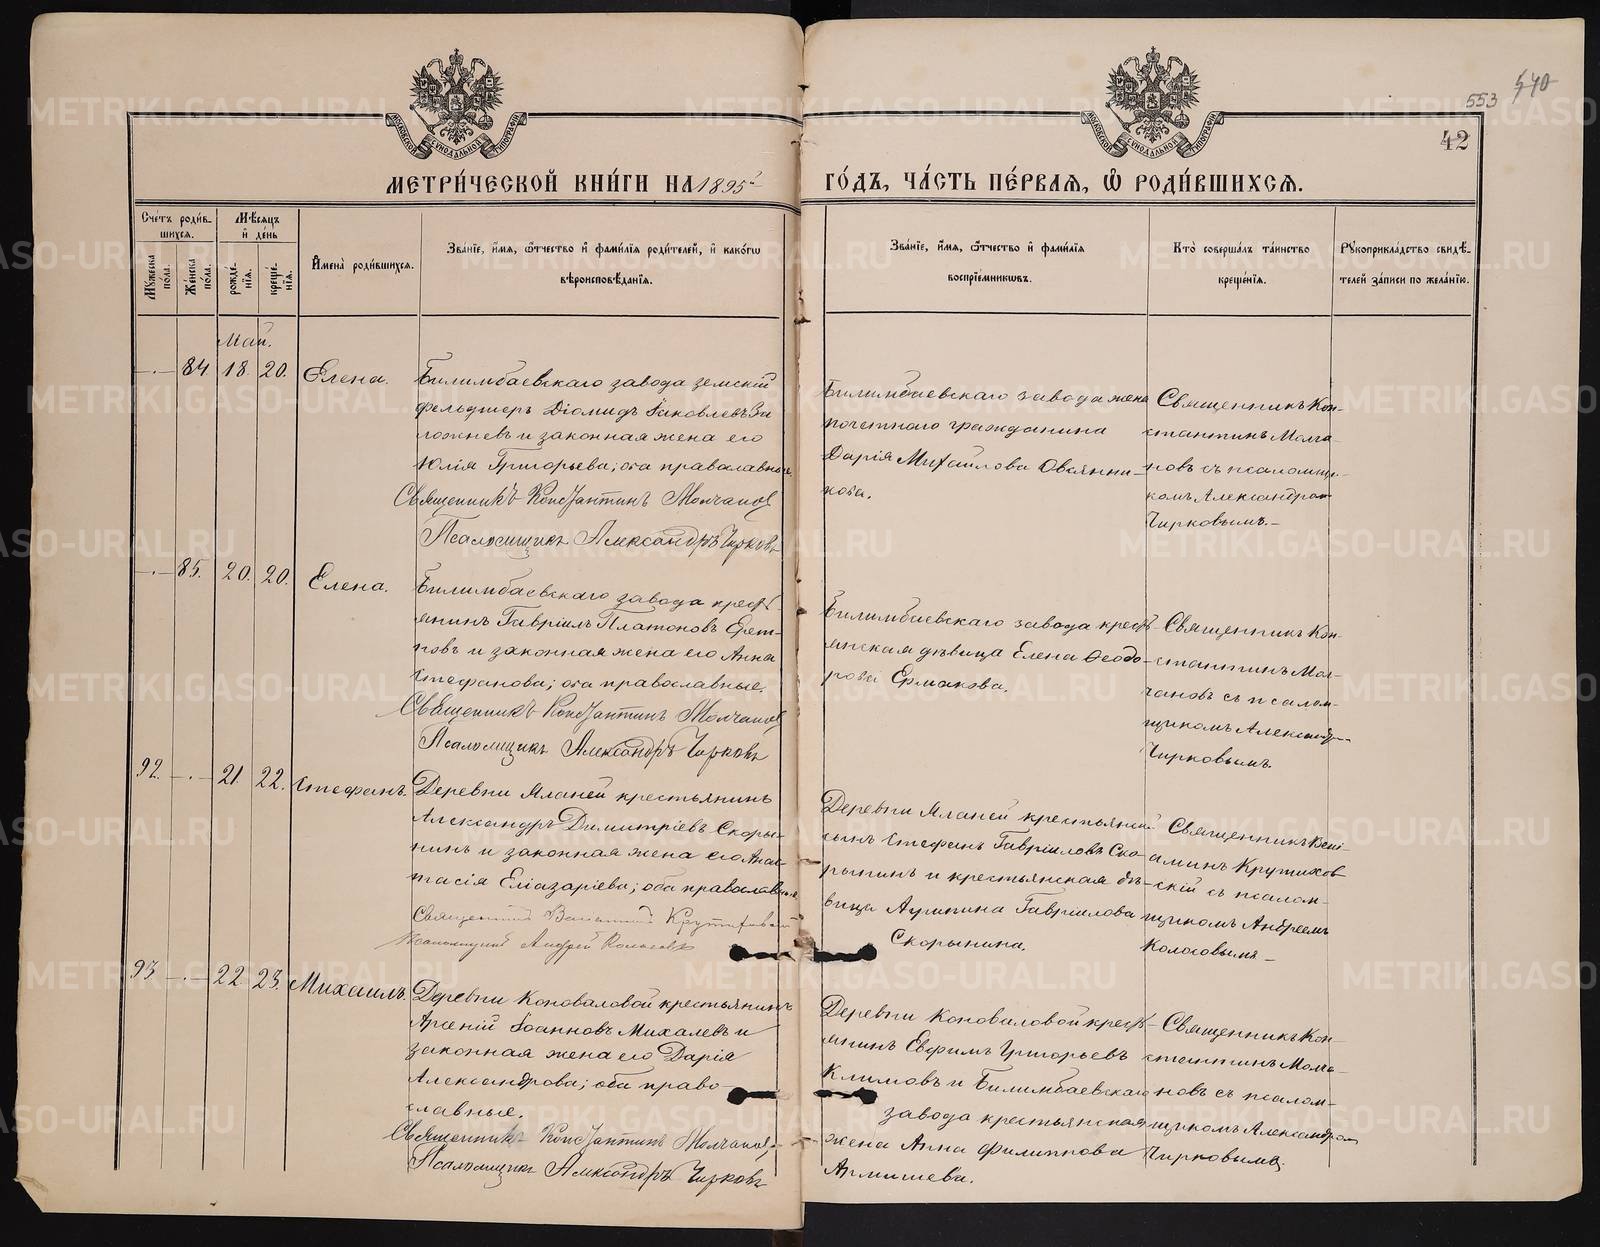 553 540
42
МОСКОВСКОЙ СѴНОДАЛЬНОЙ ТИПОГРАФІИ
МОСКОВСКОЙ СѴНОДАЛЬНОЙ ТИПОГРАФІИ
МЕТРИ́ЧЕСКОЙ КНИ́ГИ НА 1895й
ГО́ДЪ, ЧА́СТЬ ПЕ́РВАЯ, Ѡ РОДИ́ВШИХСЯ.
Сче́тъ роди́в-
шихся.
Мꙋжеска
пола.
Же́нска
пола.
Мѣ́сяцъ
и̑ де́нь
рожде́-
нїя.
креще́-
нїя.
И҆мена̀ роди́вшихся.
Зва́нїе, и҆́мя, ѻ҆́тчество и҆ фами́лїя роди́телей, и҆ како́гѡ
вѣроисповѣ́данїя.
Зва́нїе, и҆́мя, ѻ҆́тчество и҆ фами́лїя
воспрїе́мникѡвъ.
Кто̀ соверша́лъ та́инство
креще́нїя.
Рꙋкоприкла́дство свидѣ́-
телей за́писи по жела́нїю.
Май.
-.- 84 18. 20. Елена.
Билимбаевскаго завода земскій
фельдшеръ Діомидъ Іаковлевъ За
ложневъ и законная жена его
Юлія Григорьева; оба православные.
Священникъ Константинъ Молчановъ
Псаломщикъ Александръ Чирковъ
Билимбаевскаго завода жена
почетнаго гражданина
Дарія Михайлова Овчинни-
кова.
Священникъ Кон-
стантинъ Молча-
новъ съ псаломщи-
комъ Александромъ
Чирковымъ.-
-.- 85. 20. 20. Елена.
Билимбаевскаго завода кресть-
янинъ Гавріилъ Платоновъ
и законная жена его Анна
Стефанова; оба православные.
Священникъ Константинъ Молчановъ
Псаломщикъ Александръ Чирковъ
Билимбаевскаго завода кресть-
янская дѣвица Елена Ѳеодо-
рова Ермакова.
Священникъ Кон-
стантинъ Мол-
чановъ съ псалом-
щикомъ Александр-
Чирковымъ.
92. -.- 21. 22. Стефанъ.
Деревни крестьянинъ
Александръ Димитріевъ Скоры-
нинъ и законная жена его Анас-
тасія Еліазаріева; оба православные
Священникъ Крутиховскій
Псаломщикъ Андрей Колосовъ
Деревни крестьянскій
сынъ Стефанъ Гавріиловъ Ско-
рынинъ и крестьянская дѣ-
вица Агрипина Гавріилова
Скорынина.
Священникъ Вені-
аминъ Крутихов
скій съ псалом-
щикомъ Андреемъ
Колосовымъ-
93 -.- 22 23. Михаилъ.
Деревни Коноваловой крестьянинъ
Арсеній Іоанновъ Михалевъ и
законная жена его Дарія
Александрова; оба право-
славные.
Священникъ Константинъ Молчановъ
Псаломщикъ Александръ Чирковъ
Деревни Коноваловой кресть-
янинъ Евфимъ Григорьевъ
Климовъ и Билимбаевскаго
завода крестьянская
жена Анна Филиппова
Священникъ Кон-
стантинъ Молча-
новъ съ псалом-
щикомъ Александромъ
Чирковымъ.
METRIKI.GASO-URAL.RU